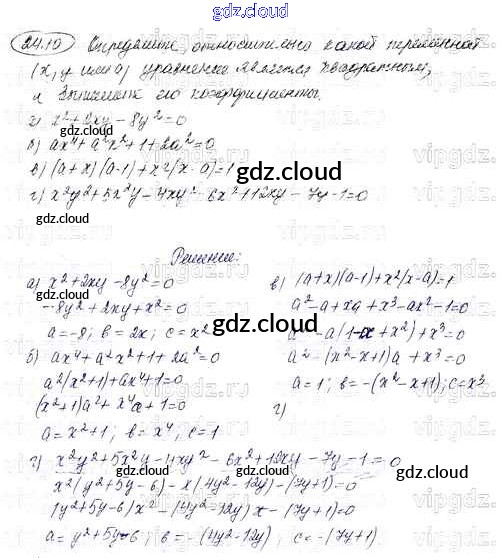 gdz.cloud
24.10 Определите, относительно какой переменной
(x, y или a) уравнение является квадратным,
и запишите его коэффициенты.
а) x²+2xy-8y²=0
б) ax⁴+a²x²+1+2a²=0
в) (a+x)(a-1)+x²(x-a)=1
г) x²y²+5x²y-4xy²-6x²+12xy-7y-1=0
Решение:
а) x²+2xy-8y²=0
-8y²+2xy+x²=0
a=-8; b=2x; c=x²
б) ax⁴+a²x²+1+2a²=0
a²(x²+1)+ax⁴+1=0
(x²+1)a²+x⁴a+1=0
a=x²+1; b=x⁴; c=1
в) (a+x)(a-1)+x²(x-a)=1
a²-a+xa+x³-ax²-1=0
a²-a(1-x+x²)+x³=0
a²-(x²-x+1)a+x³=0
a=1; b=-(x²-x+1); c=x³
г)
г) x²y²+5x²y-4xy²-6x²+12xy-7y-1=0
x²(y²+5y-6)-x(4y²-12y)-(7y+1)=0
(y²+5y-6)x²-(4y²-12y)x-(7y+1)=0
a=y²+5y-6; b=-(4y²-12y), c=-(7y+1)